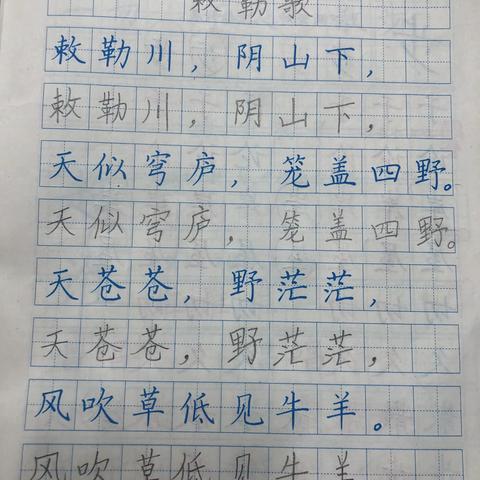 敕勒歌
敕勒川，阴山下，
敕勒川，阴山下，
天似穹庐，笼盖四野。
天似穹庐，笼盖四野。
天苍苍，野茫茫，
天苍苍，野茫茫，
风吹草低见牛羊。
风吹草低见牛羊